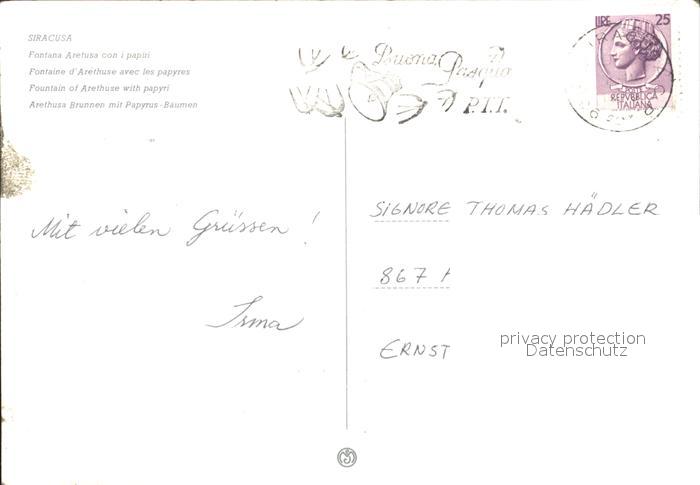 SIRACUSA
Fontana Aretusa con i papiri
Fontaine d'Arethuse avec les papyres
Fountain of Arethuse with papyri
Arethusa Brunnen mit Papyrus-Bäumen
Buona
Pasqua
P.T.T.
LIRE 25
POSTE
REPVBBLICA
ITALIANA
Mit vielen Grüssen !
Irma
SIGNORE THOMAS HÄDLER
867
ERNST
privacy protection
Datenschutz